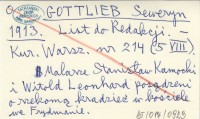 GOTTLIEB Seweryn
1913. List do Redakcji. –
Kur. Warsz. nr 214 (5 VIII).
Malarze Stanisław Kamocki
i Witold Leonhard posądzeni
o rzekomą kradzież w kościele
we Frydmanie.